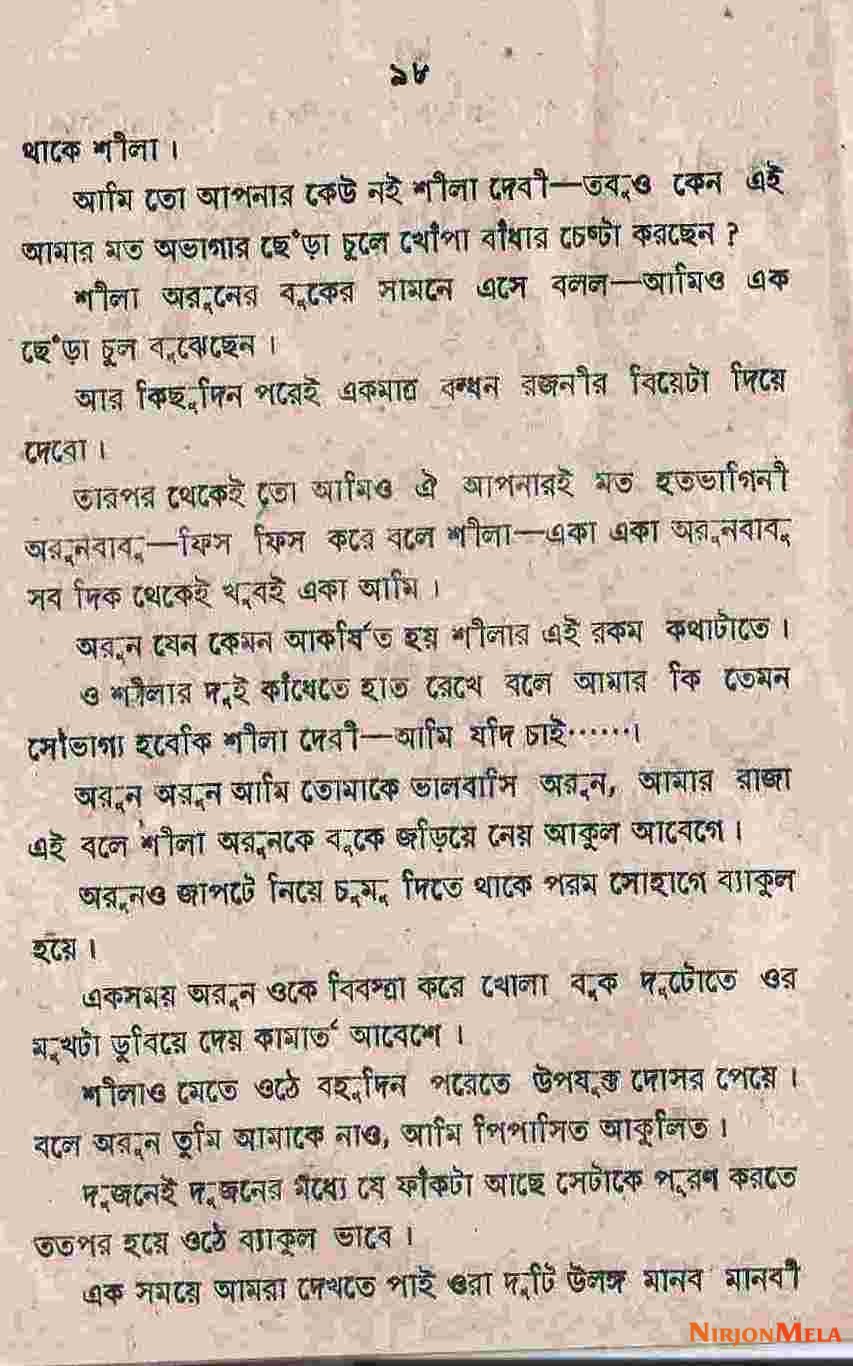 ৯৮
থাকে শীলা ।
আমি তো আপনার কেউ নই শীলা দেবী—তবুও কেন এই
আমার মত অভাগার ছেঁড়া চুলে খোঁপা বাঁধার চেষ্টা করছেন ?
শীলা অরুনের বুকের সামনে এসে বলল—আমিও এক
ছেঁড়া চুল বুঝেছেন ।
আর কিছুদিন পরেই একমাত্র বন্ধন রজনীর বিয়েটা দিয়ে
দেবো ।
তারপর থেকেই তো আমিও ঐ আপনারই মত হতভাগিনী
অরুনবাবু—ফিস ফিস করে বলে শীলা—একা একা অরুনবাবু
সব দিক থেকেই খুবই একা আমি ।
অরুন যেন কেমন আকর্ষিত হয় শীলার এই রকম কথাটাতে ।
ও শীলার দুই কাঁধেতে হাত রেখে বলে আমার কি তেমন
সৌভাগা হবেকি শীলা দেবী—আমি যদি চাই......।
অরুন অরুন আমি তোমাকে ভালবাসি অরুন, আমার রাজা
এই বলে শীলা অরুনকে বুকে জড়িয়ে নেয় আকুল আবেগে ।
অরুনও জাপটে নিয়ে চুমু দিতে থাকে পরম সোহাগে ব্যাকুল
হয়ে ।
একসময় অরুন ওকে বিবস্ত্রা করে খোলা বুক দুটোতে ওর
মুখটা ডুবিয়ে দেয় কামার্ত আবেশে ।
শীলাও মেতে ওঠে বহুদিন পরেতে উপযুক্ত দোসর পেয়ে ।
বলে অরুন তুমি আমাকে নাও, আমি পিপাসিত আকুলিত ।
দুজনেই দুজনের মধ্যে যে ফাঁকটা আছে সেটাকে পূরণ করতে
ততপর হয়ে ওঠে ব্যাকুল ভাবে ।
এক সময়ে আমরা দেখতে পাই ওরা দুটি উলঙ্গ মানব মানবী
NIRJONMELA